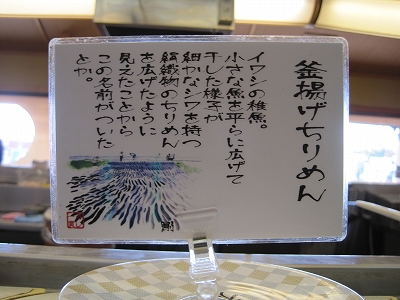 釜揚げちりめん
イワシの稚魚。
小さな魚を平らに広げて
干した様子が
細かなシワを持つ
絹織物のちりめん
を広げたように
見えたことから
この名前がついた
とか。